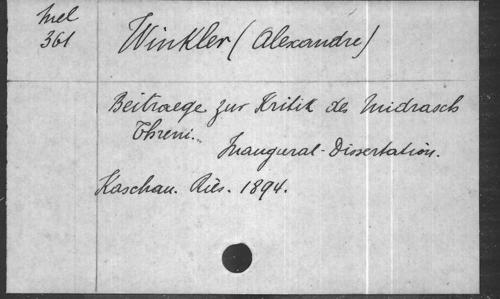 Mel
361
Winkler (Alexandre)
Beitraege zur Kritik des Midrasch
Threni.
Inaugural-Dissertation.
Kaschau. Ries. 1894.